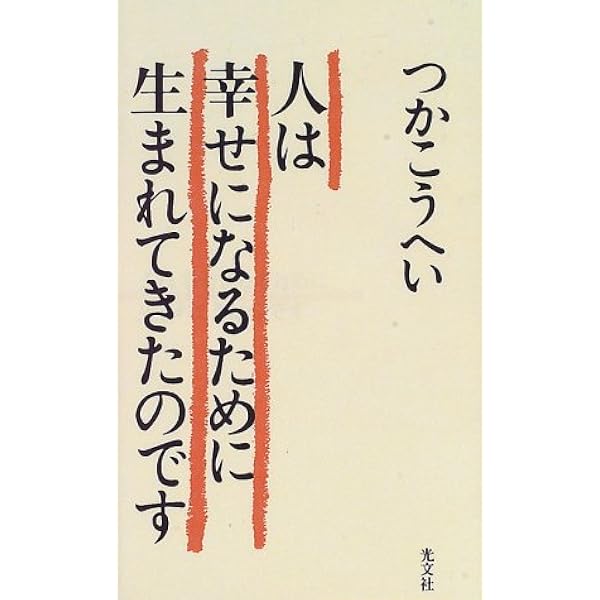 つかこうへい
人は
幸せになるために
生まれてきたのです
光文社